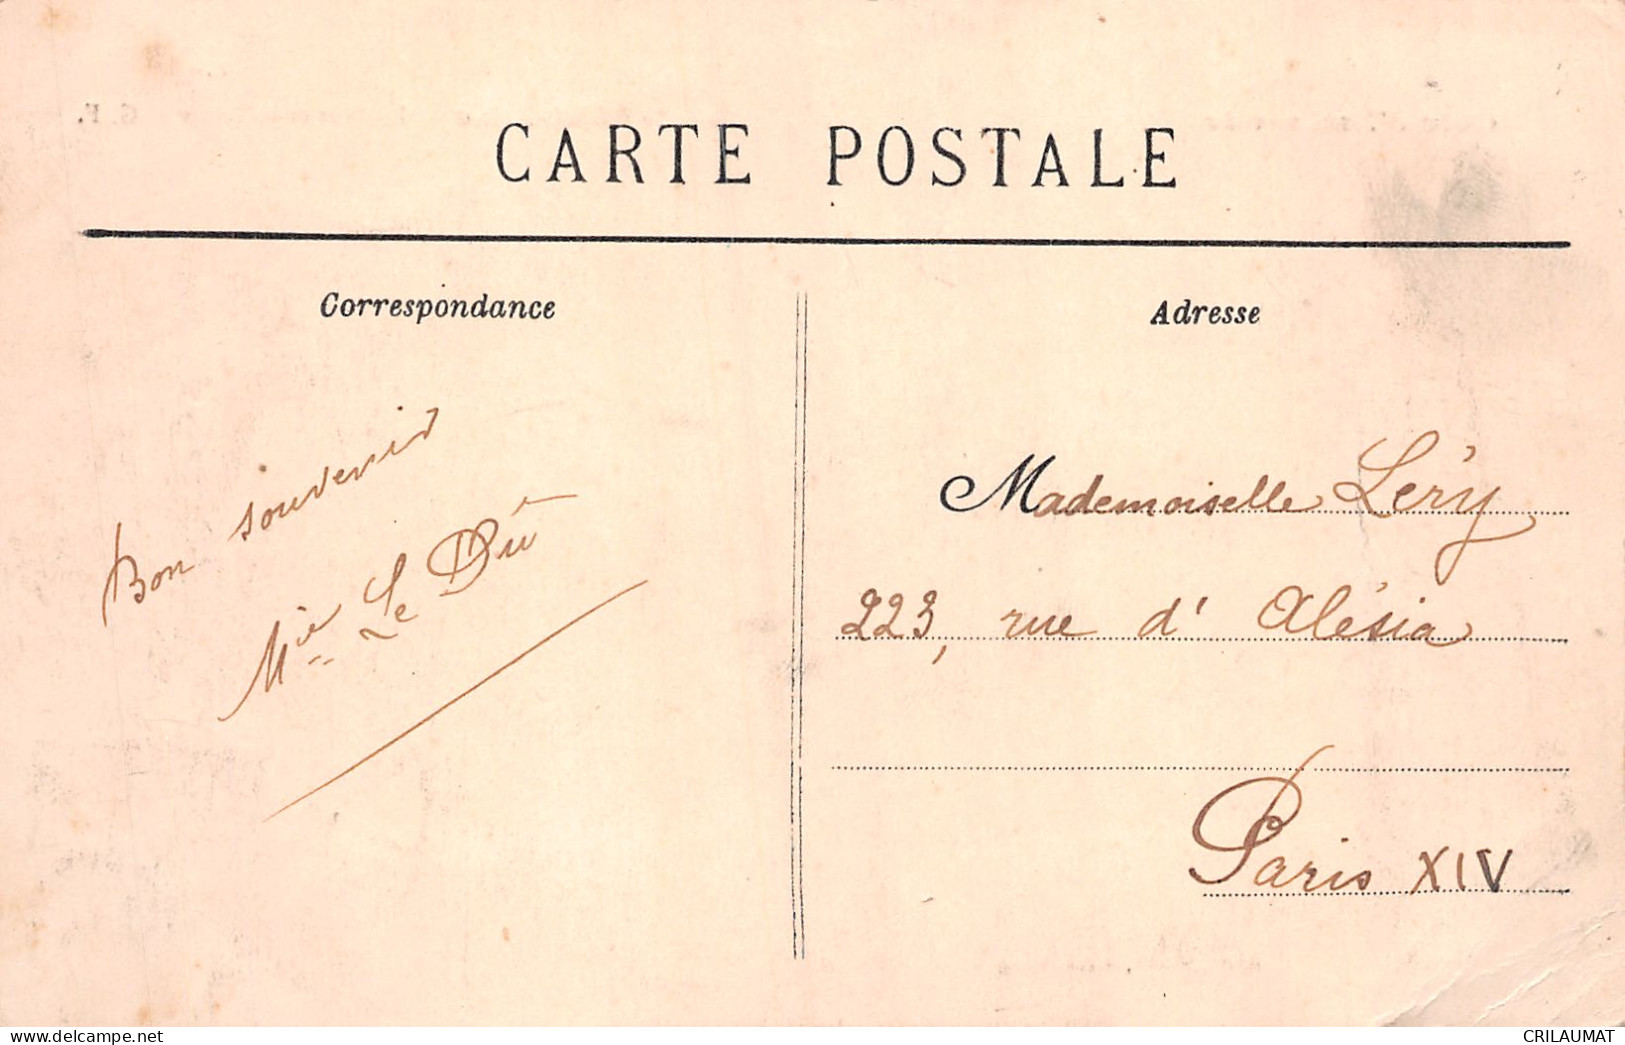 CARTE POSTALE
Correspondance
Bon souvenir
Mie Le Dû
Adresse
Mademoiselle Léry
223, rue d' Alésia
Paris XIV
G. F.
CRILAUMAT